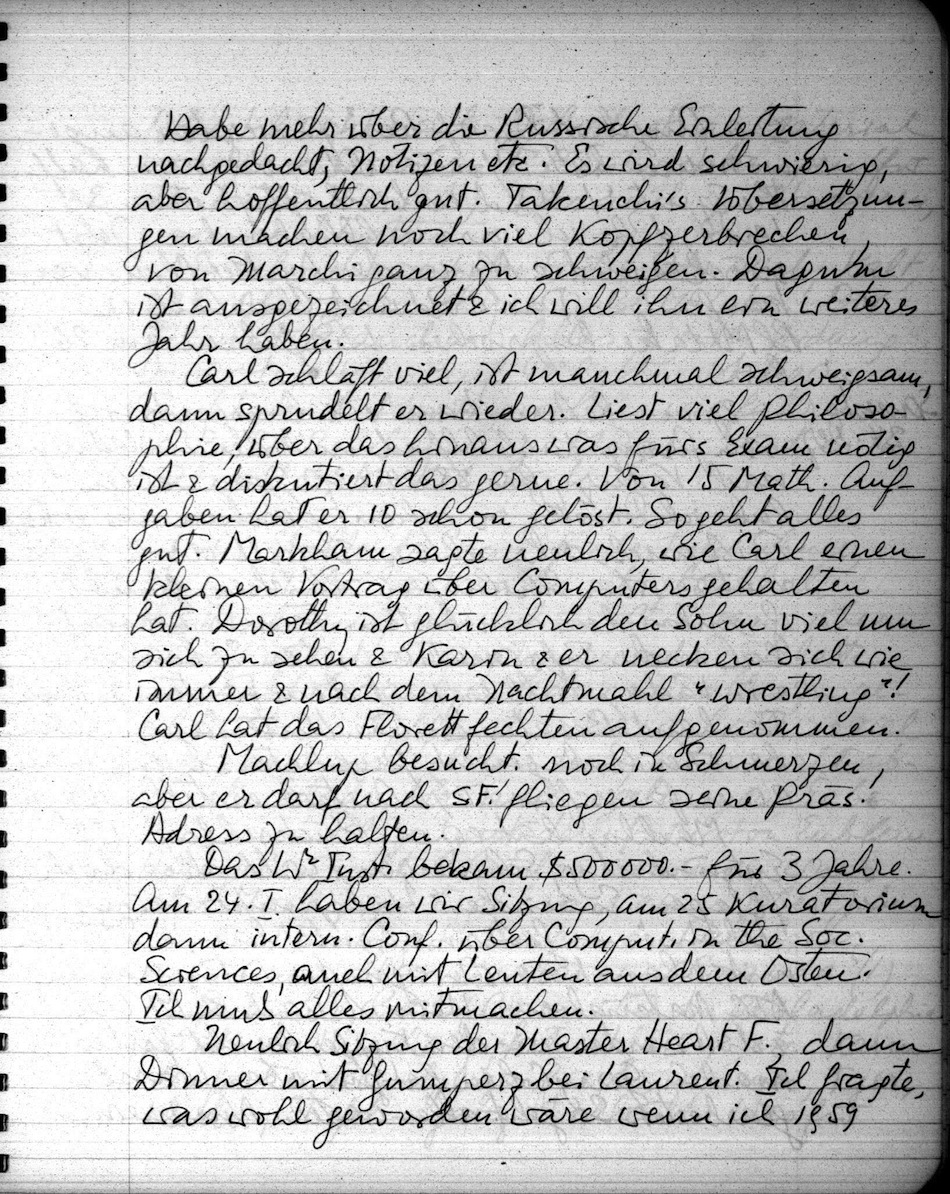 Habe mehr über die Russische Einleitung
nachgedacht, Notizen etc. Es wird schwierig,
aber hoffentlich gut. Takeuchi's Übersetzun-
gen machen noch viel Kopfzerbrechen,
von Marchi ganz zu schweigen. Dagum
ist ausgezeichnet & ich will ihn ein weiteres
Jahr haben.
Carl schläft viel, ist manchmal schweigsam,
dann sprudelt er wieder. Liest viel Philoso-
phie, über das hinaus was für's Exam nötig
ist & diskutiert das gerne. Von 15 Math. Auf-
gaben hat er 10 schon gelöst. So geht alles
gut. Markham sagte neulich, wie Carl einen
kleinen Vortrag über Computers gehalten
hat. Dorothy ist glücklich den Sohn viel um
sich zu sehen & Karin & er necken sich wie
immer & nach dem Nachtmahl "wrestling"!
Carl hat das Florettfechten aufgenommen.
Machlup besucht. noch in Schmerzen,
aber er darf nach SF. fliegen seine Präs.
Adress zu halten.
Das Wr Inst. bekam $500000.- für 3 Jahre.
Am 24. I. haben wir Sitzung, am 25 Kuratorium
dann intern. Conf. über Comput. in the Soc.
Sciences, auch mit Leuten aus dem Osten.
Ich muß alles mitmachen.
Neulich Sitzung der Master Heart F., dann
Dinner mit Gumperz bei Laurent. Ich fragte,
was wohl geworden wäre wenn ich 1959